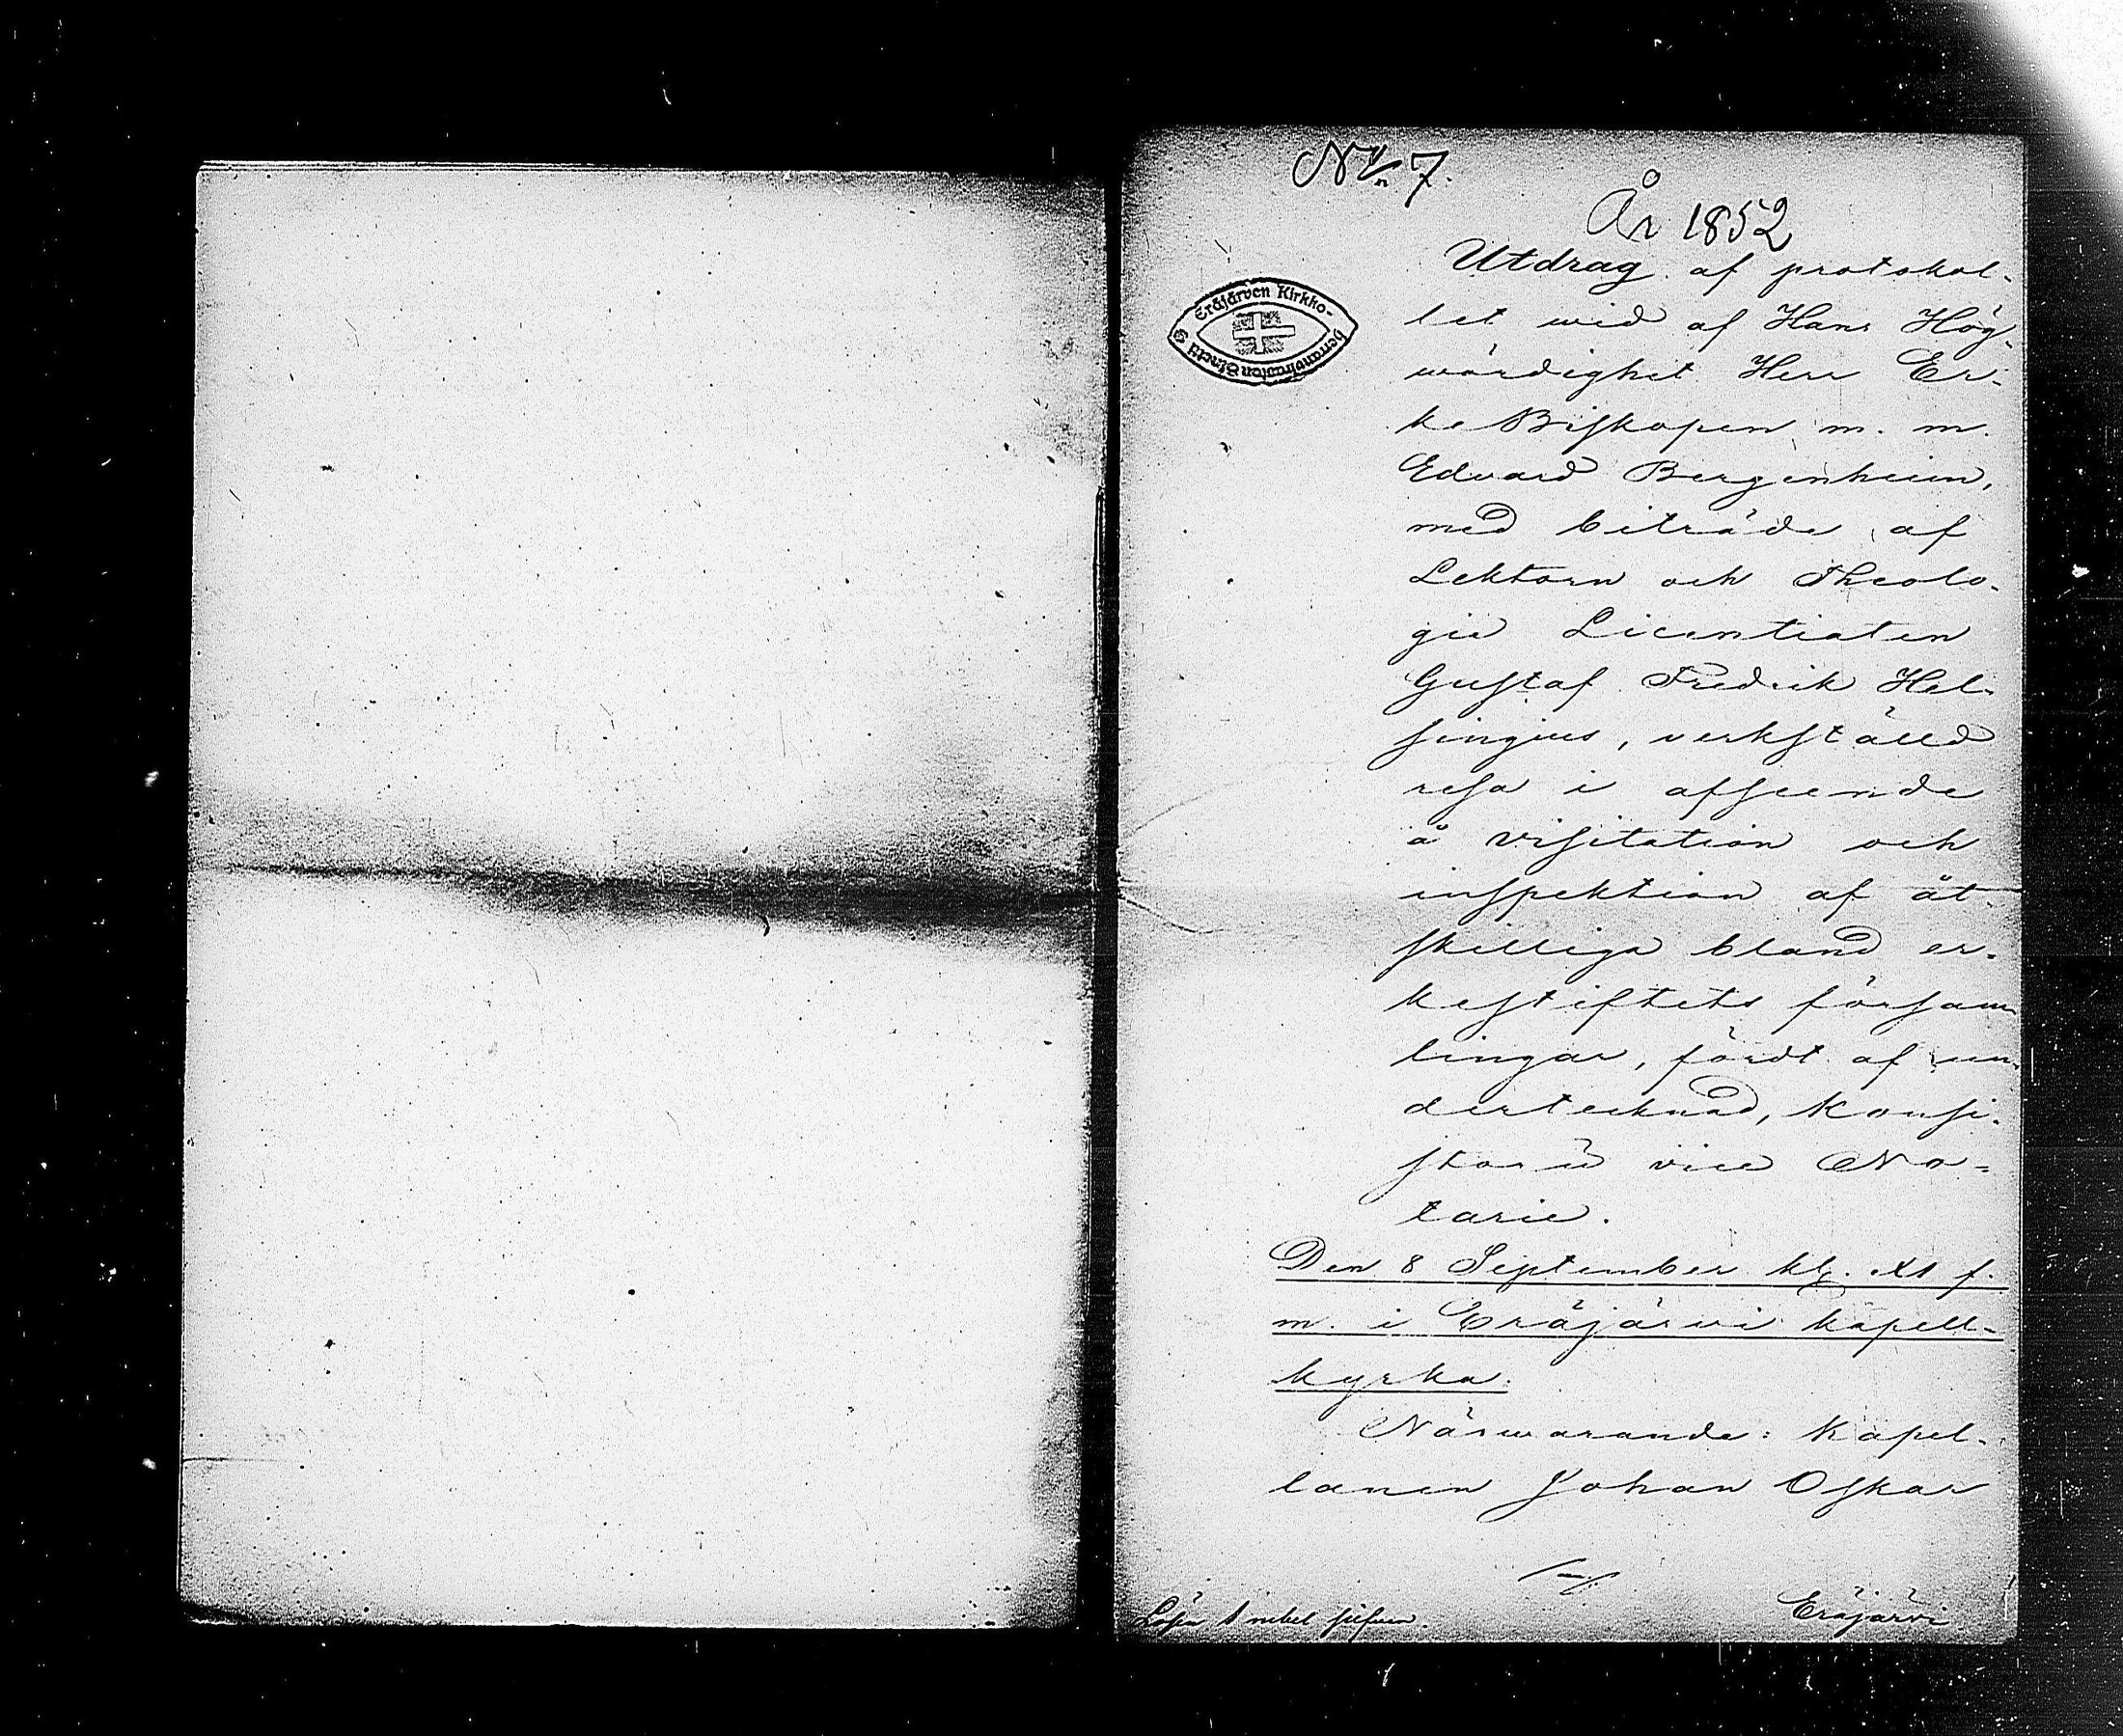 No 7.
År 1852
Utdrag af protokol-
let wid af Hans Hög-
wördighet Herr Er-
ke Biskopen m. m.
Edvard Bergenheim,
med biträde af
Lektorn och Theolo-
gie Licentiaten
Gustaf Fredrik Hel-
singius, verkställd
resa i afseende
å visitation och
inspektion af åt-
skilliga bland er-
kestiftets försam-
lingar, fördt af un-
dertecknad, Konsi-
storii vice No-
tarie.
Den 8 September kl. XI f.
m. i Eräjärwi kapell-
kyrka.
Närwarande: Kapel-
lanen Johan Oskar
Eräjärvi
Lösen 1 rubel silfver.
Eräjärven Kirkko-
herranviraston Sinetti